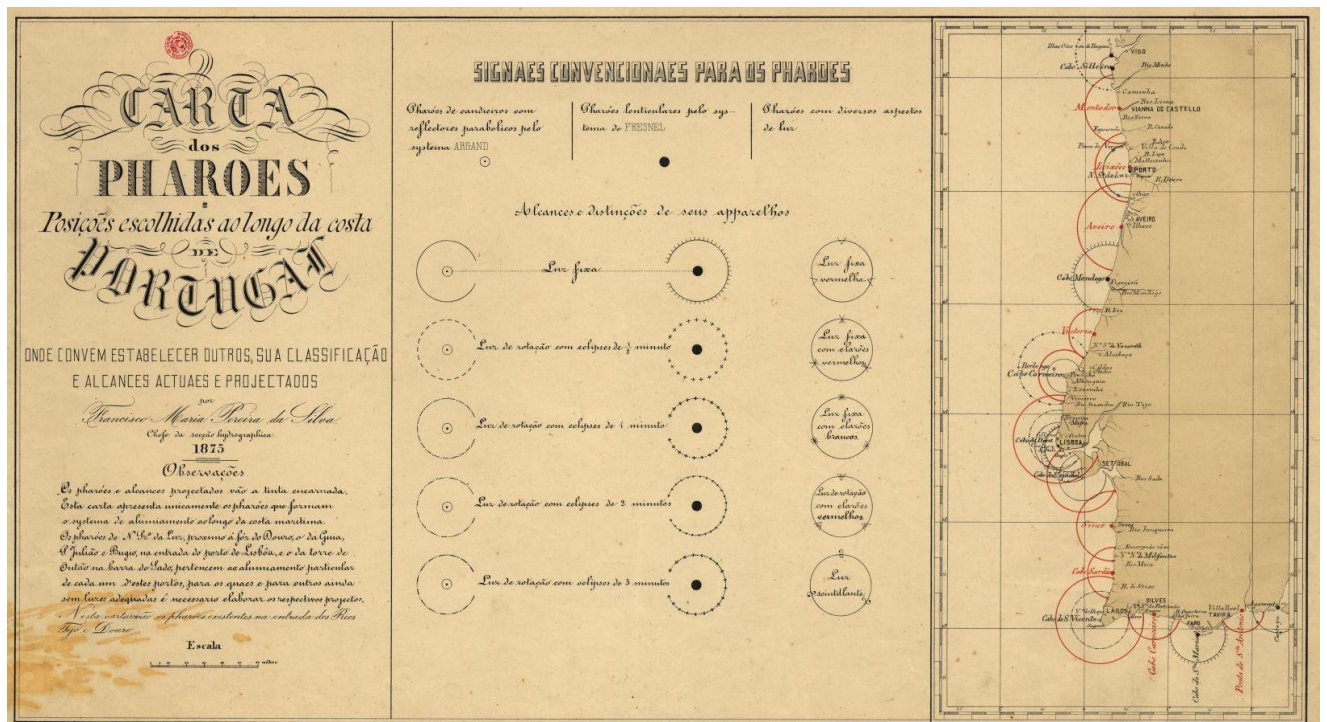 CARTA
dos
PHAROES
e
Posições escolhidas ao longo da costa
DE
PORTUGAL
ONDE CONVEM ESTABELECER OUTROS, SUA CLASSIFICAÇÃO
E ALCANCES ACTUAES E PROJECTADOS
por
Francisco Maria Pereira da Silva
Chefe da secção hydrographica
1875
Observações
Os pharóes e alcances projectados vão a tinta encarnada.
Esta carta apresenta unicamente os pharóes que formam
o systema de alumiamento ao longo da costa maritima.
Os pharóes de Nª Srª da Luz, proximo á foz do Douro, o da Guia,
S. Julião e Bugio, na entrada do porto de Lisbôa, e o da torre de
Outão na barra do Sado, pertencem ao alumiamento particular
de cada um d'estes portos, para os quaes e para outros ainda
sem luzes adequadas é necessario elaborar os respectivos projectos.
Nesta carta vão os pharóes existentes na entrada dos Rios
Tejo e Douro
Escala
milhas
SIGNAES CONVENCIONAES PARA OS PHAROES
Pharóes de candieiros com
reflectores parabolicos pelo
systema ARGAND
Pharóes lenticulares pelo sys-
tema de FRESNEL
Pharóes com diversos aspectos
de luz
Alcances e distincções de seus apparelhos
Luz fixa
Luz fixa
vermelha
Luz de rotação com eclipses de ½ minuto
Luz fixa
com clarões
vermelhos
Luz de rotação com eclipses de 1 minuto
Luz fixa
com clarões
brancos
Luz de rotação com eclipses de 2 minutos
Luz de rotação
com clarões
vermelhos
Luz de rotação com eclipses de 3 minutos
Luz
scintillante
VIGO
Cabo Silleiro
Rio Minho
Caminha
Rio Lima
Montedor
VIANNA DO CASTELLO
Rio Neiva
Espozende
R. Cavado
Villa do Conde
Leixões
PORTO
R. Douro
Aveiro
AVEIRO
Ilhavo
Cabo Mondego
Figueira
Rio Mondego
R. Liz
Alcobaça
Cabo Carvoeiro
Rio Tejo
LISBOA
SETUBAL
Rio Sado
Sines
Rio Junqueira
Vª Nª de Milfontes
Rio Mira
Cabo Sardão
SILVES
LAGOS
Cabo de S. Vicente
Cabo Carvoeiro
FARO
TAVIRA
Cabo de Stª Maria
Ponta de Stº Antonio